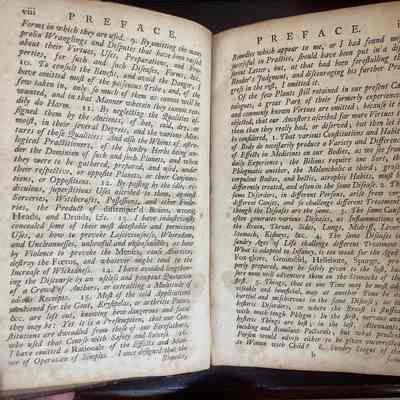 viii PREFACE.
Forms in which they are used. 9. By omitting the many
prolix Wranglings and Disputes that have been raised
about their Virtues, Uses, Preparations, and Pro-
perties, for such and such Diseases, Forms, &c.
10. To consult the Benefit, and avoid the Danger, I
have omitted most of the poisonous Tribe; and, of the
few taken in, only so much of them as cannot be well
wanted, and in that Manner wherein they cannot pos-
sibly do Harm. 11. By neglecting the Qualities as-
signed them by the Ancients, of hot, cold, dry, or
moist, in their several Degrees, and the various
tures of those Qualities: And also the Whims of Astro-
logical Practitioners, of the
der the Dominion of such and such Planets, and when
they were to be gathered, prepared, and used, under
their respective, or opposite Planets, or their Conjunc-
tions, or Oppositions. 12. By passing by the idle, ri-
diculous, superstitious Uses ascribed to them, against
Sorceries, Witchcrafts, Possessions, and other Fooler-
ies, the Product of distemper'd Brains, wrong
Heads, and Druids, &c. 13. I have industriously
concealed some of their most detestable and pernicious
Uses, as how to provoke Lasciviousness, Whoredom,
and Uncleannesses, unlawful and unseasonable; as how
by Violence to provoke the Menses, cause Abortion,
destroy the Foetus, and such as might tend to the
Increase of Wickedness. 14. I have avoided lengthen-
ing the Discourse by an useless and pompous Quotation
of a Croud of Authors, or extolling a Multitude of
idiotic Receipts. 15. Most of the vain Applications
mentioned for the Gout, Erysipelas, or arthritic Pains,
&c. are left out, knowing how dangerous and fatal
they may be: Yet it is a Presumption, that our Con-
stitutions are dwindled from those of our Forefathers,
who used that Course with Safety and Success. 16.
I have omitted a Rationale of the Effects and Man-
ner of Operation of Simples. I once designed that the
Remedies
PREFACE.
Remedies which appear to me, or I had found most
successful in Practice, should have been put in a dif-
ferent Letter; but, as that had been forestalling the
Reader's Judgment, and discouraging his further Pro-
gress in the rest, I omitted it.
Of the few Plants still retained in our present Ca-
talogues, a great Part of their formerly experienced
and commonly known Virtues are omitted; because it is
objected, that our Ancestors ascribed far more Virtues to
them than they really had, or deserved; but then it
be considered, 1. That various Constitutions and Habits
of Body do necessarily produce a Variety and Difference
of Effects in Medicines on our Bodies, as we see from
daily Experience: The Bilious require one Sort, the
Phlegmatic another, the Melancholic a third,
robust Bodies, and hectic Habits, must be
differently treated, and often in the same Disease. 2. The
same Disorders, in different Persons, arise from very
different Causes, and so challenge different Treatment,
though the Diseases are the same. 3. The same Causes
often generate various Diseases, as Inflammations of
the Brain, Throat, Sides, Lungs, Midriff, Liver,
Stomach, Kidneys, &c. 4. The same Diseases in
sundry Ages of Life challenge different Treatment.
What is adapted to Infancy, is too weak for the Aged.
Fox-glove, Groundsel, Hellebore, Spurge,
perly prepared, may be safely given to the last,
sure man will adventure them in the Diseases of the
first. 5. Things, that at one Time may be most ad-
visable and beneficial, may at another Time be as
hurtful and mischievous in the same Disease; as in
hysteric Disorders, or where the Breast is stuffed
with much tough Phlegm: In the first, nervous and
hysteric Things are best; in the last, attenuants,
inciding and stimulate Pectorals; but what prudent
Person would advise either to be given uncorrected
to Women with Child? 6. Sundry Stages of the
b